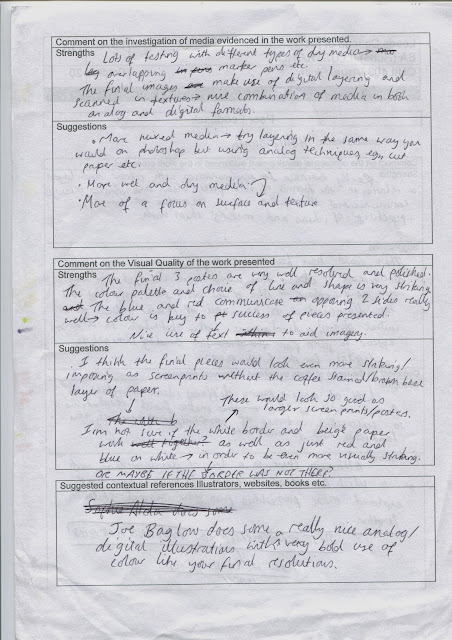 Comment on the investigation of media evidenced in the work presented.
Strengths Lots of testing with different types of dry media →
overlapping marker pens etc.
The final images make use of digital layering and
scanned in textures → nice combination of media in both
analog and digital formats.
Suggestions
• More mixed media → try layering in the same way you
would on photoshop but using analog techniques, e.g., cut
paper etc.
• More wet and dry media
• More of a focus on surface and texture
Comment on the Visual Quality of the work presented
Strengths The final 3 posters are very well resolved and polished.
The colour palette and choice of line and shape is very striking
The blue and red communicate opposing 2 sides really
well → colour is key to success of pieces presented.
Nice use of text to aid imagery.
Suggestions
I think the final pieces would look even more striking/
imposing as screenprints without the coffee stained/brown base
layer of paper.
These would look so good as
larger screen prints/posters.
I'm not sure if the white border and beige paper
work as well as just red and
blue on white → in order to be even more visually striking.
OR MAYBE IF THE BORDER WAS NOT THERE?
Suggested contextual references Illustrators, websites, books etc.
Joe Baglow does some really nice analog/
digital illustrations with very bold use of
colour like your final resolutions.